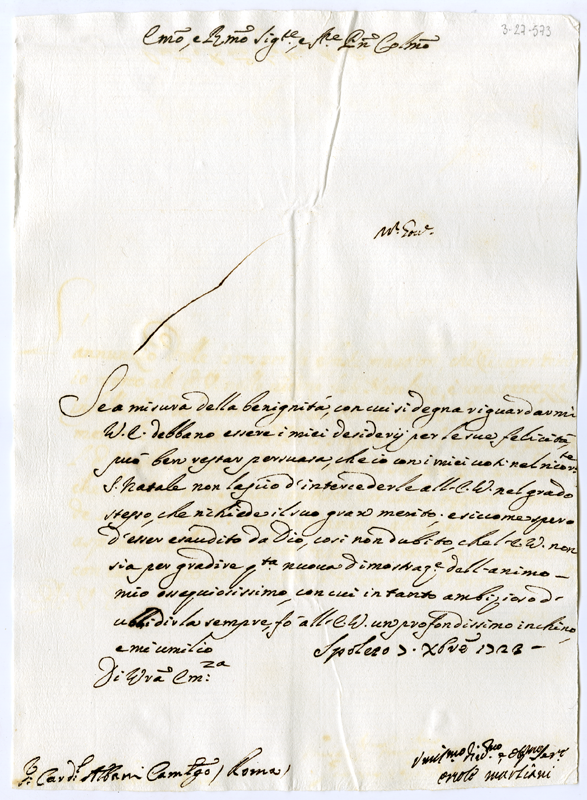 3-27-573
Emõ, e Rmõ Sigre, e Pne Colmõ
Se a misura della benignità, con cui si degna riguardarmi
V. E. debbano essere i miei desiderij per le sue felicità,
può ben restar persuasa, che io con i miei voti nel ricor.te
S. Natale non lascio d'intercederle all'E. V. nel grado
stesso, che richiede il suo gran merito; e siccome spero
d'esser esaudito da Dio, così non dubito, che l'E. V. non
sia per gradire q.ta nuova dimostraz.e dell'animo
mio ossequiosissimo, con cui intanto ambizioso d'
ubbidirla sempre, fò all'E. V. un profondissimo inchino,
e mi umilio Spoleto
Di Vrã Em.za
Card.l Albani Camlgõ (Roma)